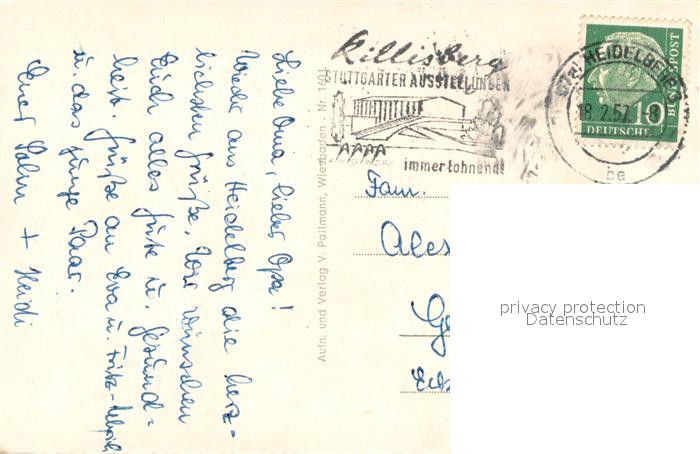 Liebe Oma, lieber Opa!
Wieder aus Heidelberg die herz-
lichsten Grüße. Wir wünschen
Euch alles Gute u. Gesund-
heit. Grüße an Eva u. Fritz-
u. das junge Paar.
Euer + Heidi
Aufn. und Verlag V. Pallmann, Wiesbaden - Nr. 160
Killisberg
STUTTGARTER AUSSTELLUNGEN
immer lohnend!
HEIDELBERG
18.2.57.
be
10
DEUTSCHE
BUNDESPOST
Fam.
Ales
Ge
privacy protection
Datenschutz